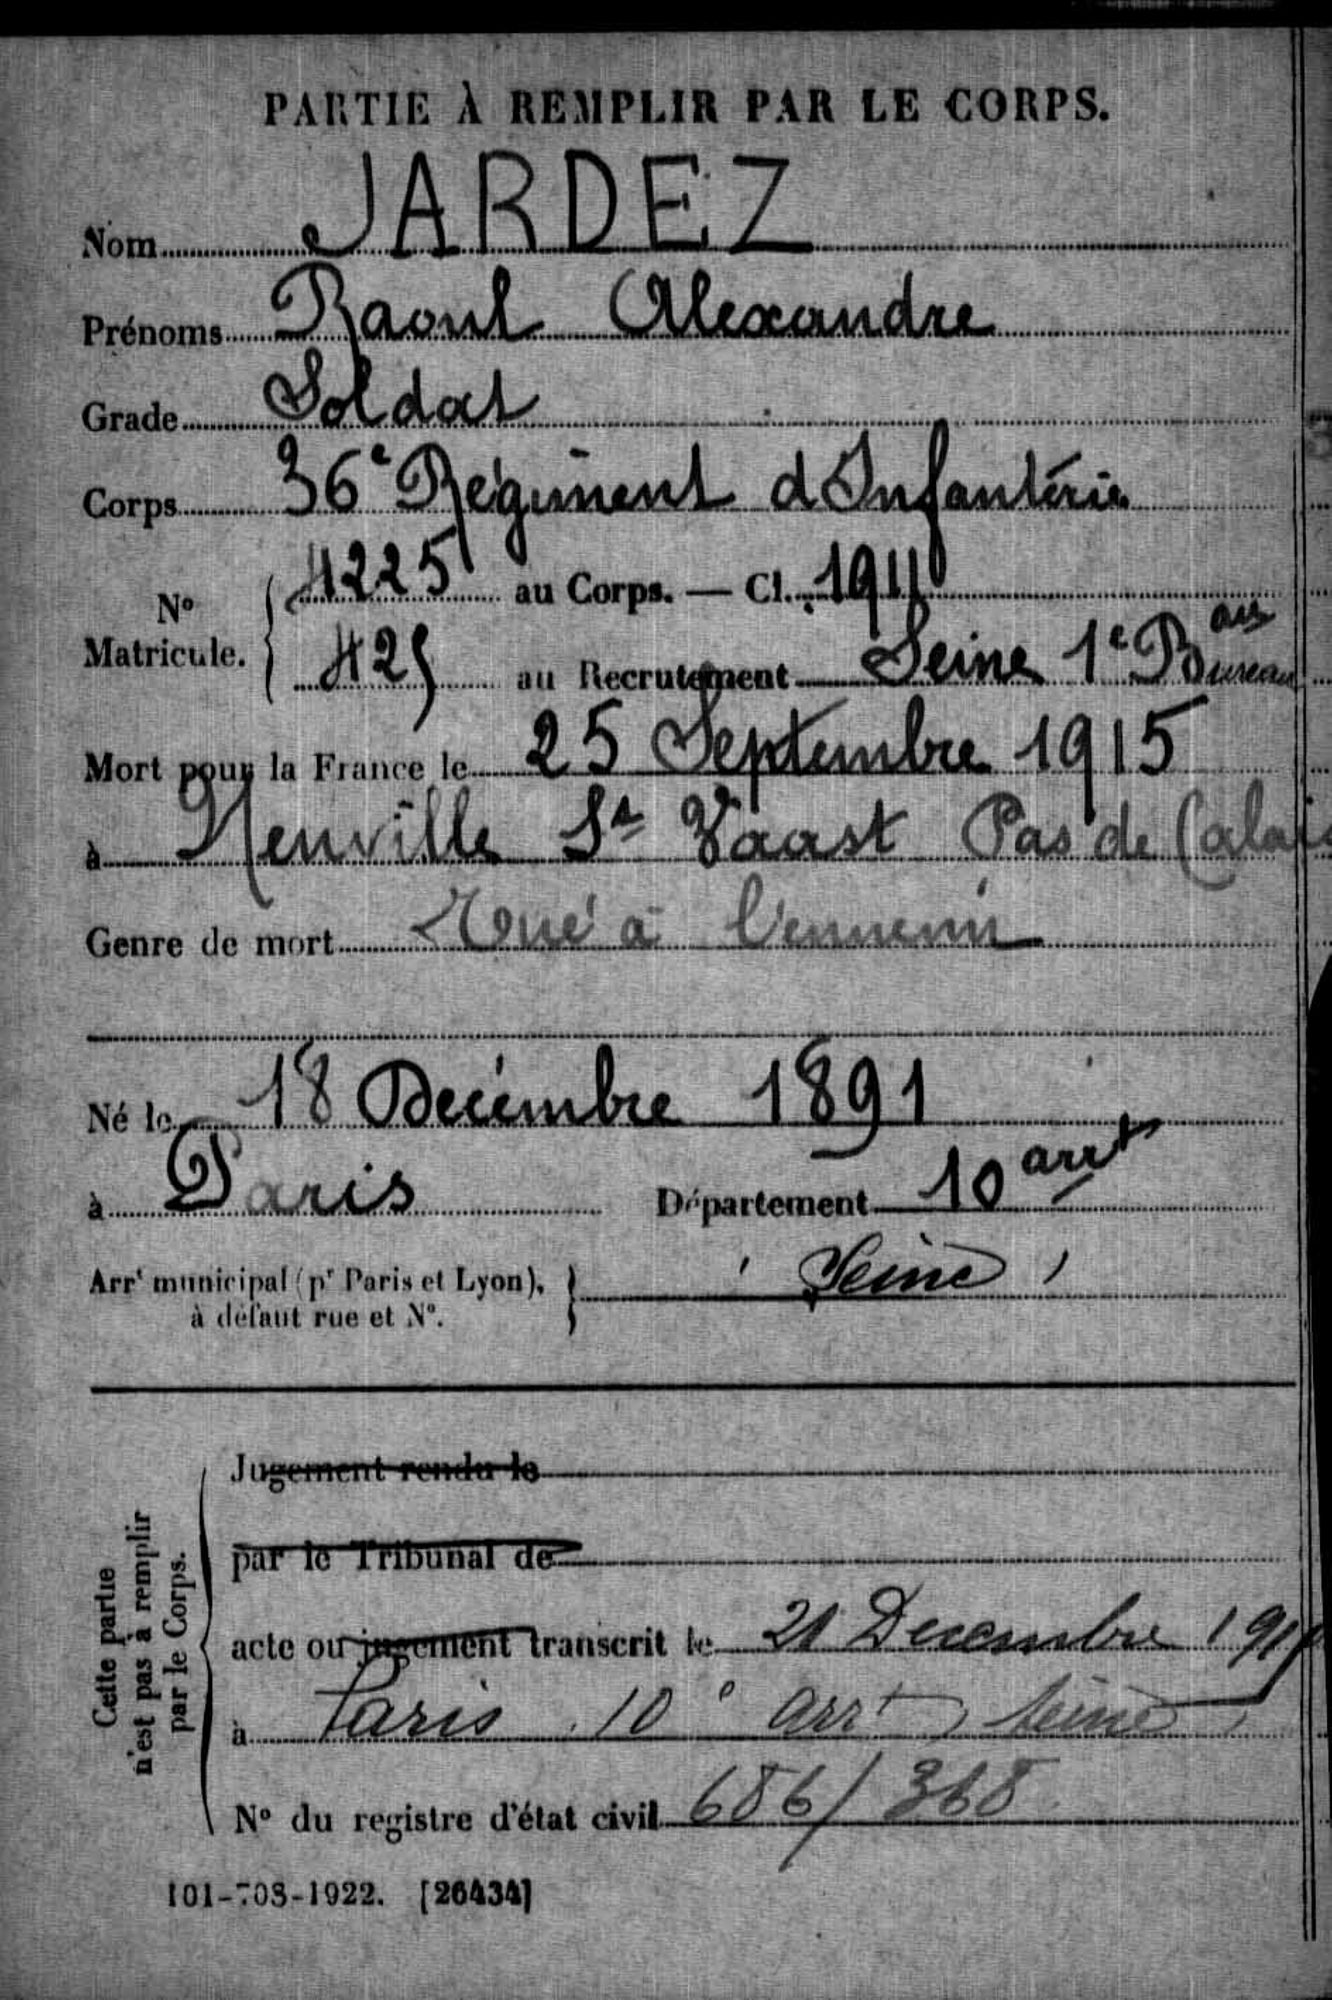 PARTIE À REMPLIR PAR LE CORPS.
Nom JARDEZ
Prénoms Raoul Alexandre
Grade Soldat
Corps 36e Régiment d'Infanterie
No Matricule. { 4225 au Corps. — Cl. 1911
425 au Recrutement Seine 1e Bureau
Mort pour la France le 25 Septembre 1915
à Neuville St Vaast Pas de Calais
Genre de mort Tué à l'ennemi
Né le 18 Décembre 1891
à Paris Département 10 arrt
Arrt municipal (pr Paris et Lyon), à défaut rue et No. } (Seine)
Cette partie n'est pas à remplir par le Corps.
Jugement rendu le
par le Tribunal de
acte ou jugement transcrit le 21 Decembre
à Paris 10e arrt Seine
No du registre d'état civil 686/368
101-708-1922. [26434]